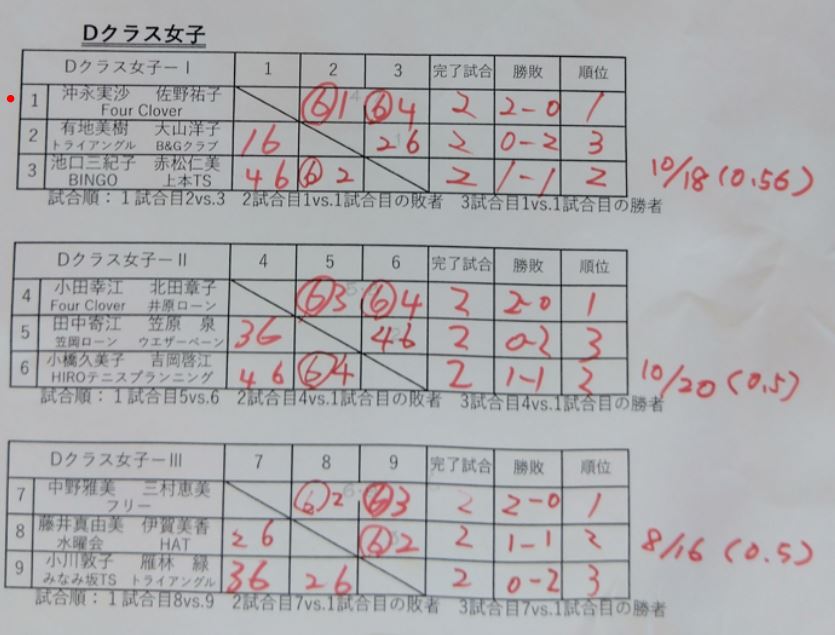 Dクラス女子
Dクラス女子ーI 1 2 3 完了試合 勝敗 順位
1 沖永実沙 佐野祐子 ⑥1 ⑥4 2 2-0 1
Four Clover
2 有地美樹 大山洋子 16 26 2 0-2 3
トライアングル B&Gクラブ
3 池口三紀子 赤松仁美 46 ⑥2 2 1-1 2
BINGO 上本TS
10/18(0.56)
試合順：１試合目2vs.3 2試合目1vs.1試合目の敗者 3試合目1vs.1試合目の勝者
Dクラス女子ーII 4 5 6 完了試合 勝敗 順位
4 小田幸江 北田章子 ⑥3 ⑥4 2 2-0 1
Four Clover 井原ローン
5 田中寄江 笠原 泉 36 46 2 0-2 3
笠岡ローン ウエザーベーン
6 小橋久美子 吉岡啓江 46 ⑥4 2 1-1 2
HIROテニスプランニング
10/20(0.5)
試合順：１試合目5vs.6 2試合目4vs.1試合目の敗者 3試合目4vs.1試合目の勝者
Dクラス女子ーIII 7 8 9 完了試合 勝敗 順位
7 中野雅美 三村恵美 ⑥2 ⑥3 2 2-0 1
フリー
8 藤井真由美 伊賀美香 26 ⑥2 2 1-1 2
水曜会 HAT
9 小川敦子 雁林 緑 36 26 2 0-2 3
みなみ坂TS トライアングル
8/16(0.5)
試合順：１試合目8vs.9 2試合目7vs.1試合目の敗者 3試合目7vs.1試合目の勝者